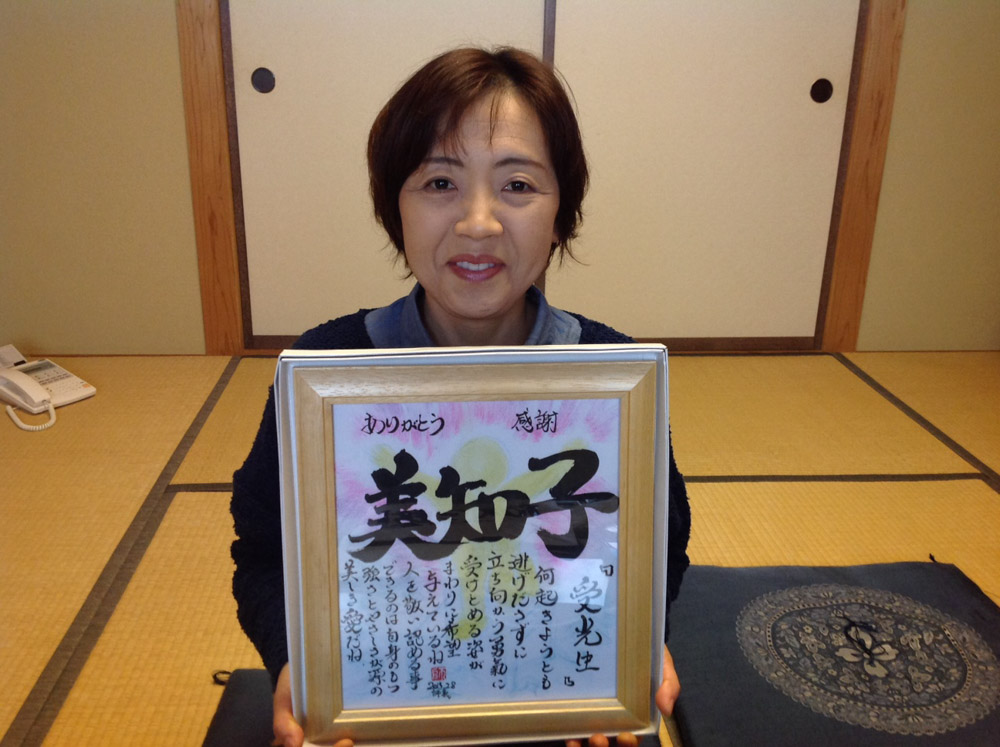 ありがとう 感謝
美知子
何起きようとも
逃げださずに
立ち向かう勇氣に
受けとめる姿が
まわりに希望
与えているね
人を敬い認める事
できるのは自身のもつ
強さとやさしさが源の
美しき愛だね